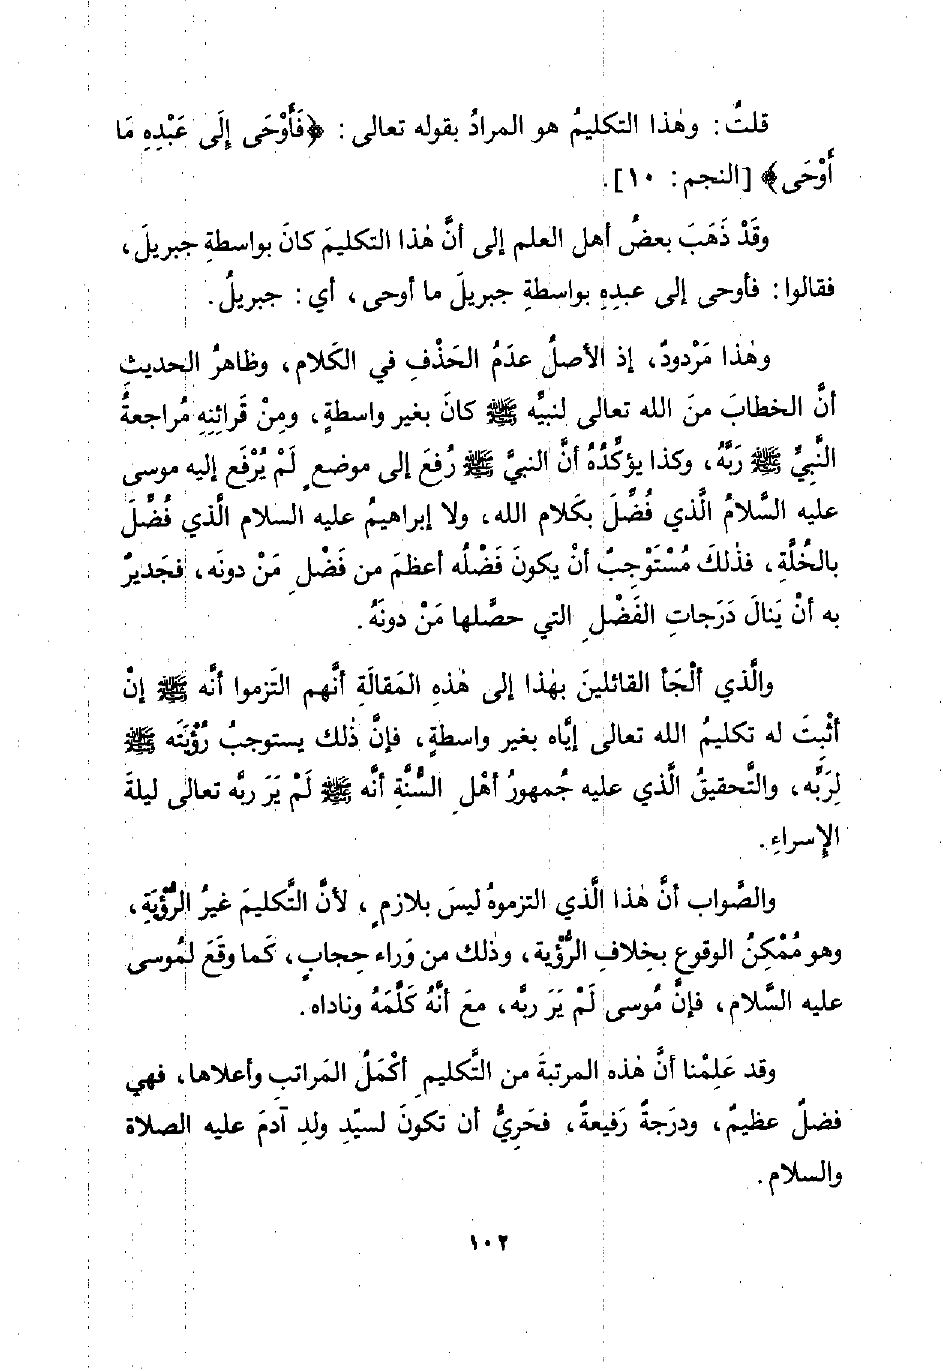 قلتُ: وهٰذا التكليمُ هو المرادُ بقوله تعالى: ﴿فَأَوْحَى إِلَى عَبْدِهِ مَا
أَوْحَى﴾ [النجم: ١٠].
وقَدْ ذَهَبَ بعضُ أهل العلم إلى أنَّ هٰذا التكليمَ كانَ بواسطةِ جبريلَ،
فقالوا: فأوحى إلى عبدِهِ بواسطةِ جبريلَ ما أوحى، أي: جبريلُ.
وهٰذا مَرْدودٌ، إذ الأصلُ عدَمُ الحَذْفِ في الكَلام، وظاهرُ الحديثِ
أنَّ الخطابَ منَ الله تعالى لنبيِّه ﷺ كانَ بغير واسطةٍ، ومِنْ قَرائِنِه مُراجعةُ
النَّبِيِّ ﷺ رَبَّهُ، وكذا يؤكِّدُهُ أنَّ النبيَّ ﷺ رُفعَ إلى موضعٍ لَمْ يُرْفَع إليه موسى
عليه السَّلامُ الَّذي فُضِّلَ بكَلام الله، ولا إبراهيمُ عليه السلام الَّذي فُضِّلَ
بالخُلَّةِ، فذٰلكَ مُسْتَوْجِبٌ أنْ يكونَ فَضْلُه أعظمَ من فَضْلِ مَنْ دونَه، فجَديرٌ
به أنْ يَنالَ دَرَجاتِ الفَضْلِ التي حصَّلها مَنْ دونَهُ.
والَّذي ألْجَأ القائلينَ بهٰذا إلى هٰذهِ المَقالَةِ أنَّهم التَزموا أنَّه ﷺ إنْ
أثْبِتَ له تكليمُ الله تعالى إيَّاه بغير واسطةٍ، فإنَّ ذٰلك يستوجبُ رُؤْيَتَه ﷺ
لِرَبِّه، والتَّحقيقُ الَّذي عليه جُمهورُ أهْلِ السُّنَّةِ أنَّه ﷺ لَمْ يَرَ ربَّه تعالى ليلةَ
الإسراءِ.
والصَّواب أنَّ هٰذا الَّذي التزموهُ ليسَ بلازمٍ، لأنَّ التَّكليمَ غيرُ الرُّؤْيَةِ،
وهو مُمْكِنُ الوقوع بخِلافِ الرُّؤْية، وذٰلك من وَراء حِجابٍ، كَما وقَعَ لمُوسى
عليه السَّلام، فإنَّ مُوسى لَمْ يَرَ ربَّه، معَ أنَّهُ كَلَّمَهُ وناداه.
وقد عَلِمْنا أنَّ هٰذه المرتبةَ من التَّكليمِ أكْمَلُ المَراتبِ وأعلاها، فهي
فضلٌ عظيمٌ، ودرَجةٌ رَفيعةٌ، فحَرِيٌّ أن تكونَ لسيِّدِ ولدِ آدمَ عليه الصلاة
والسلام.
١٠٢